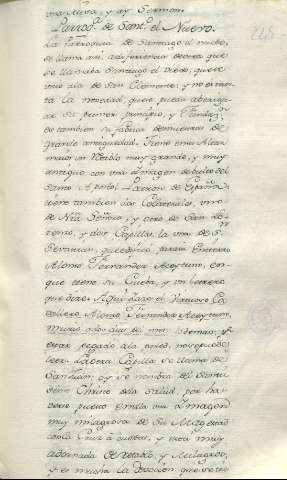 man Misa, y ay Sermon.
Parroq.ª de Sant.º el Nuevo.
La Parroquia de Santiago el nuebo,
se llama asi, a diferencia de otra que
se llamaba Santiago el Viejo, que es
oy dia de San Clemente; y no es tan-
ta la novedad, que se puedan aberigu-
ar su primer principio, y Fundaz.ⁿ
es tambien su fabrica de muestras de
grande antiguedad. Tiene en su Altar
maior un Retablo muy grande, y muy
antiguo con una Imagen de bulto del
Santo Apostol Patron de España,
tiene tambien dos Colaterales, uno
de Nra Señora, y otro de San Ge-
ronimo, y dos Capillas, la una de S.ⁿ
Sevastian, que edificó para su Entierro
Alonso Fernandez Aceytuno, en
que tiene su Bulto, y un letrero
que dize: Aqui Iaze el Virtuoso Ca-
vallero Alonso Fernandez Aceytuno,
murio año: dias de mes: lo demas, p.r
estar pegado ala pared, no se puede
leer. La otra Capilla se llama de
San Juan, oy se nombra del Santi-
simo Christo dela Salud, por ha-
verse puesto en ella una Imagen
muy milagrosa de Su Magestad
con la Cruz à cuestas, y esta muy
adornada de retablo, y Milagros,
y es mucha la devocion que se tie